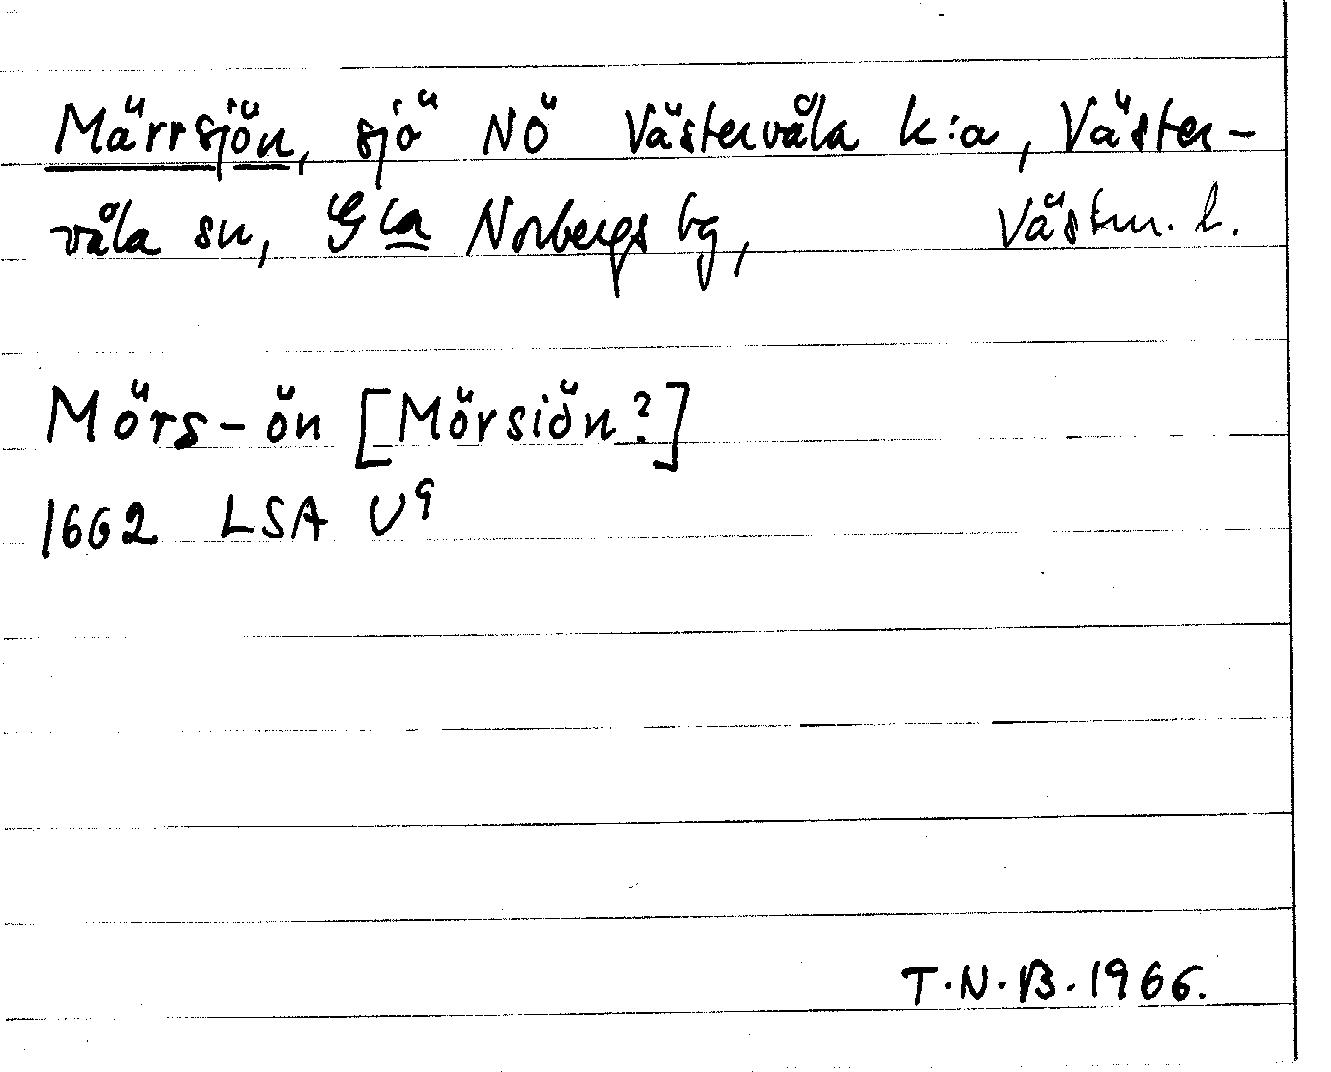 Märrsjön, sjö NÖ Västervåla k:a, Väster-
våla sn, Gla Norbergs bg, Västm. l.
Mörs-ön [Mörsiön?]
1662 LSA U9
T.N.B. 1966.